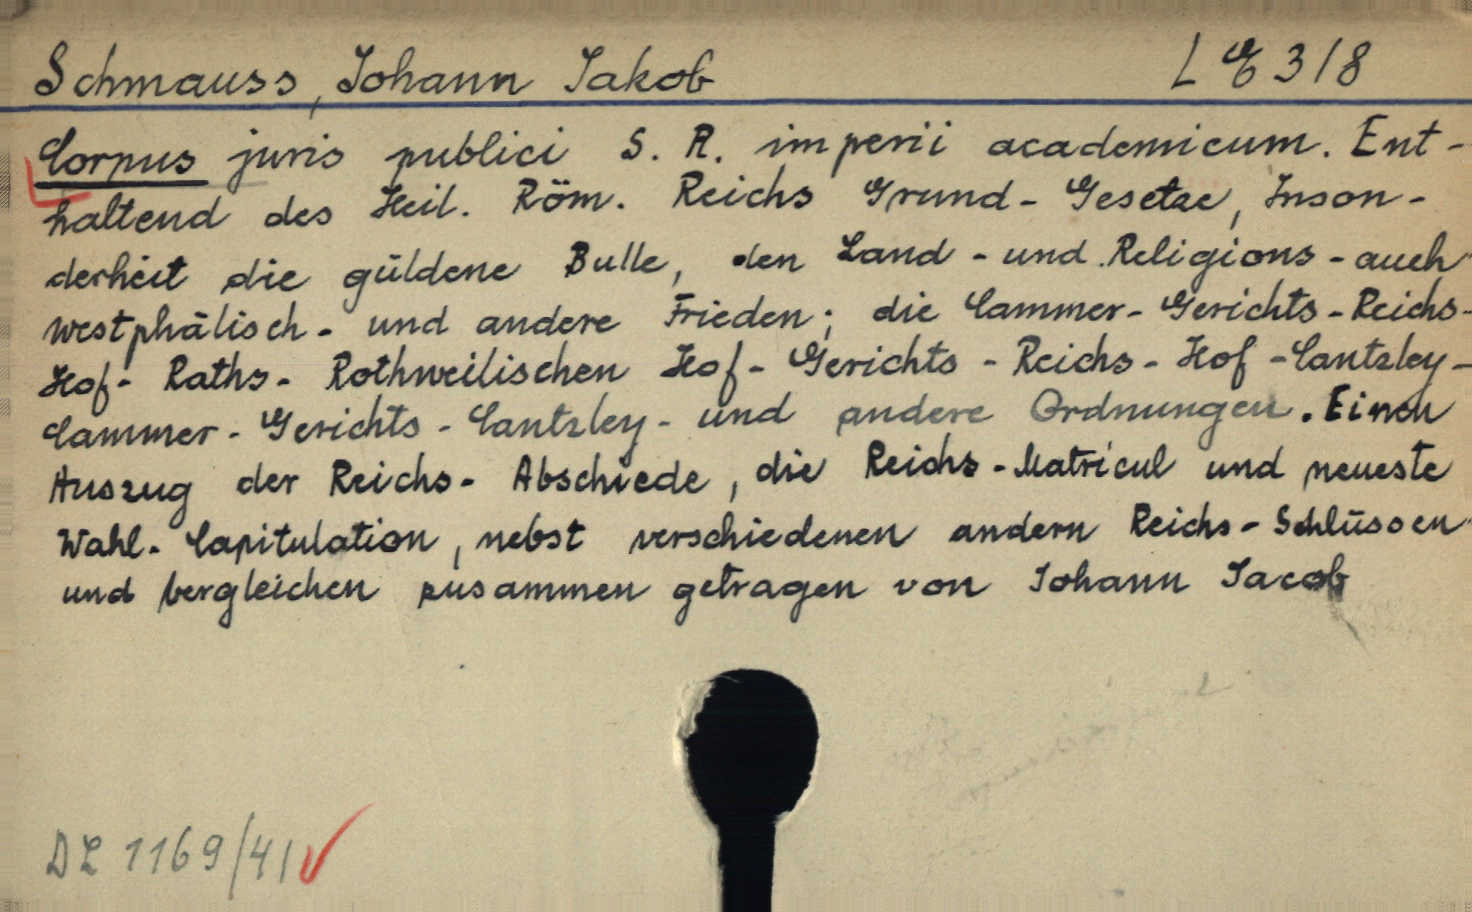 Schmauss, Johann Jakob L G 3/8
Corpus juris publici S. R. imperii academicum. Ent-
haltend des Heil. Röm. Reichs Grund- Gesetze, Inson-
derheit die güldene Bulle, den Land - und Religions - auch
westphälisch - und andere Frieden; die Cammer- Gerichts - Reichs-
Hof- Raths- Rothweilischen Hof- Gerichts - Reichs- Hof - Cantzley -
Cammer - Gerichts - Cantzley - und andere Ordnungen. Einen
Auszug der Reichs- Abschiede, die Reichs - Matricul und neueste
Wahl- Capitulation, nebst verschiedenen andern Reichs - Schlüssen
und bergleichen zusammen getragen von Johann Jacob
DL 1169/41